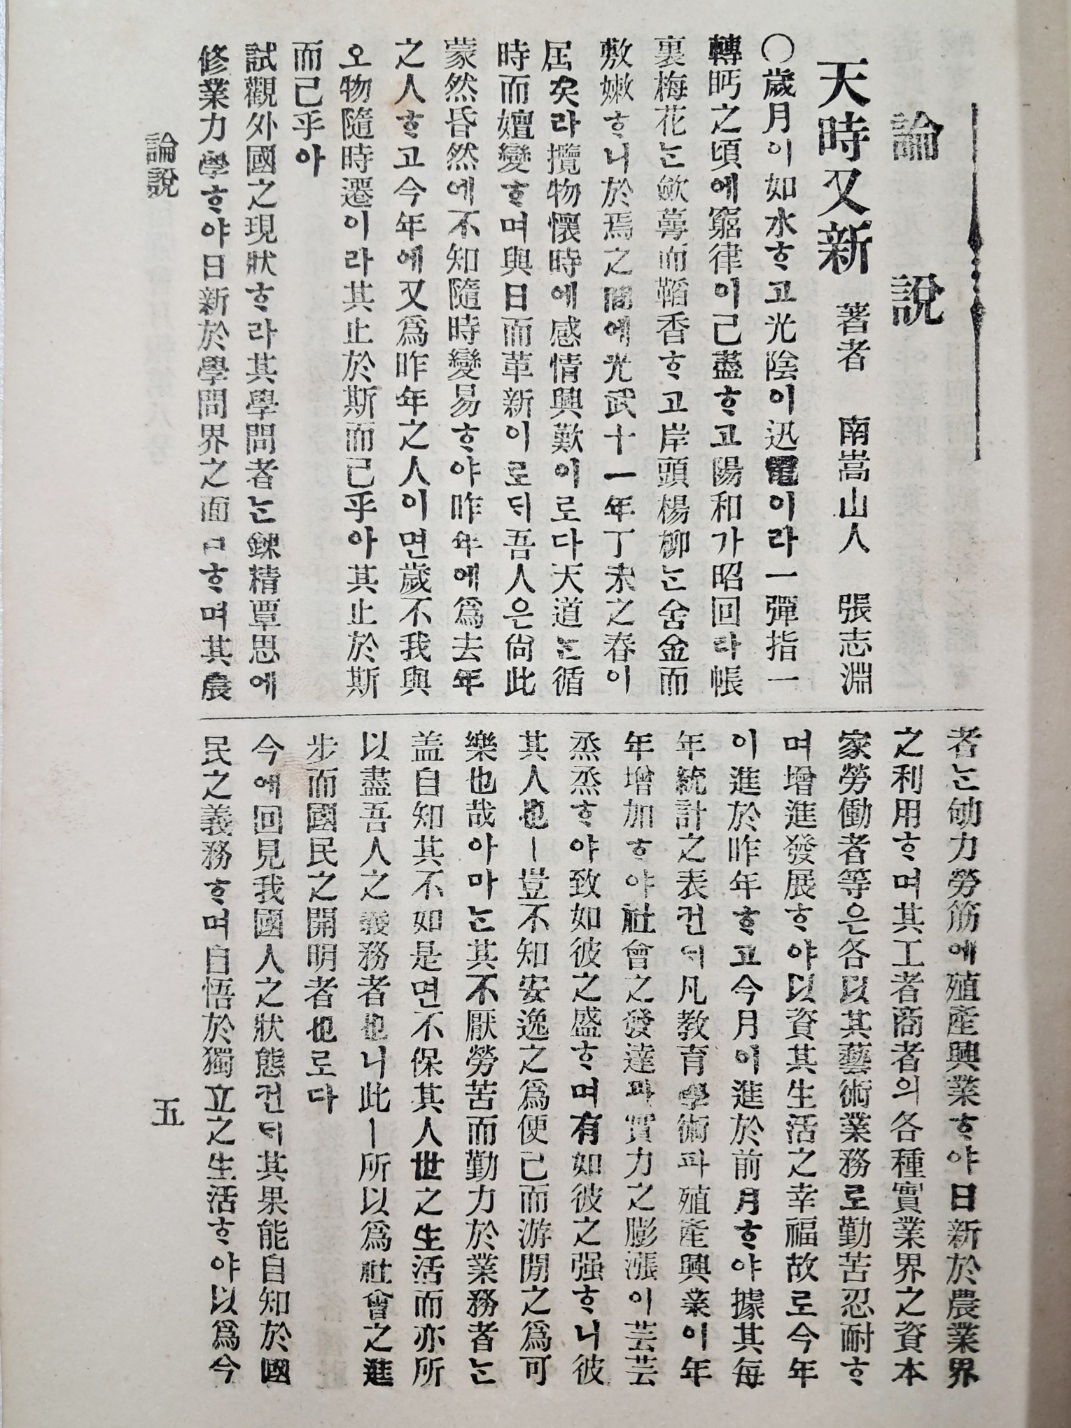 論說
天時又新 著者 南嵩山人 張志淵
〇歲月이如水ᄒᆞ고光陰이迅電이라一彈指一
轉眄之頃에窮律이已盡ᄒᆞ고陽和가昭回라帳
裏梅花ᄂᆞᆫ斂蕚而韜香ᄒᆞ고岸頭楊柳ᄂᆞᆫ舍金而
敷嫩ᄒᆞ니於焉之間에光武十一年丁未之春이
屆矣라攬物懷時에感情興歎이로다天道ᄂᆞᆫ循
時而嬗變ᄒᆞ며與日而革新이로ᄃᆡ吾人은尙此
蒙然昏然에不知隨時變易ᄒᆞ야昨年에爲去年
之人ᄒᆞ고今年에又爲昨年之人이면歲不我與
오物隨時遷이라其止於斯而已乎아其止於斯
而已乎아
試觀外國之現狀ᄒᆞ라其學問者ᄂᆞᆫ鍊精覃思에
修業力學ᄒᆞ야日新於學問界之面ᄒᆞ며其農
者ᄂᆞᆫ劬力勞筋에殖產興業ᄒᆞ야日新於農業界
之利用ᄒᆞ며其工者商者의各種實業界之資本
家勞働者等은各以其藝術業務로勤苦忍耐ᄒᆞ
며增進發展ᄒᆞ야以資其生活之幸福故로今年
이進於昨年ᄒᆞ고今月이進於前月ᄒᆞ야據其每
年統計之表건ᄃᆡ凡教育學術과殖產興業이年
年增加ᄒᆞ야社會之發達과實力之膨漲이芸芸
烝烝ᄒᆞ야致如彼之盛ᄒᆞ며有如彼之强ᄒᆞ니彼
其人也ㅣ豈不知安逸之爲便已而游閒之爲可
樂也哉아마ᄂᆞᆫ其不厭勞苦而勤力於業務者ᄂᆞᆫ
盖自知其不如是면不保其人世之生活而亦所
以盡吾人之義務者也니此ㅣ所以爲社會之進
步而國民之開明者也로다
今에回見我國人之狀態컨ᄃᆡ其果能自知於國
民之義務ᄒᆞ며自悟於獨立之生活ᄒᆞ야以爲今
論說
五